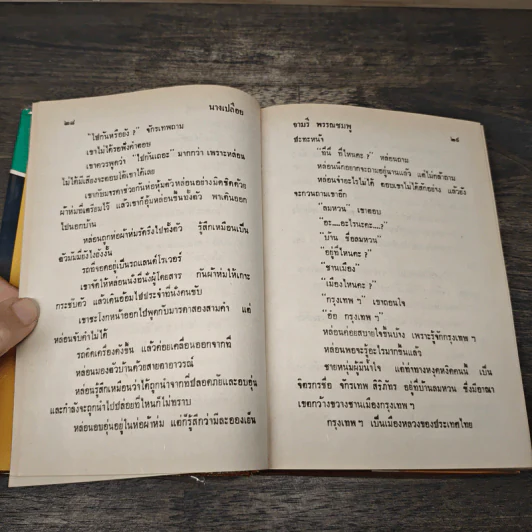 ๒๘
นางเปลือย
"ไปกันหรือยัง ?" จักรเทพถาม
เขาไม่ได้รอฟังคำตอบ
เขาควรพูดว่า "ไปกันเถอะ" มากกว่า เพราะหล่อน
ไม่ได้มีเสียงจะตอบโต้เขาได้เลย
เขากับมารดาช่วยกันห่อหุ้มตัวหล่อนอย่างมิดชิดด้วย
ผ้าห่มที่เตรียมไว้ แล้วเขาก็อุ้มหล่อนขึ้นทั้งตัว พาเดินออก
ไปนอกบ้าน
หล่อนถูกห่อผ้าห่มรัดรึงไปทั้งตัว รู้สึกเหมือนเป็น
ตัวมัมมี่ยังไงยังงั้น
รถที่จอดอยู่เป็นรถแลนด์โรเวอร์
เขาจัดให้หล่อนนั่งยังที่นั่งผู้โดยสาร กันผ้าห่มให้เกาะ
กระชับตัว แล้วเดินอ้อมไปประจำที่นั่งคนขับ
เขาชะโงกหน้าออกไปพูดกับมารดาสองสามคำ แต่
หล่อนจับคำไม่ได้
รถติดเครื่องดังขึ้น แล้วค่อยเคลื่อนออกจากที่
หล่อนมองตัวบ้านด้วยสายตาอาวรณ์
หล่อนรู้สึกเหมือนว่าได้ถูกนำจากที่ปลอดภัยและอบอุ่น
และกำลังจะถูกนำไปปล่อยที่ไหนก็ไม่ทราบ
หล่อนอบอุ่นอยู่ในห่อผ้าห่ม แต่ก็รู้สึกว่ามีละอองเย็น
จามรี พรรณชมพู
๒๙
ปะทะหน้า
"ที่นี่ ที่ไหนคะ ?" หล่อนถาม
หล่อนนึกอยากจะถามอยู่นานแล้ว แต่ไม่กล้าถาม
หล่อนจำอะไรไม่ได้ ตอบเขาไม่ได้สักอย่าง แล้วยัง
จะกวนถามเขาอีก
"ลมหวน" เขาตอบ
"อะ....อะไรนะคะ....?"
"บ้าน ชื่อลมหวน"
"อยู่ที่ไหนคะ ?"
"ชานเมือง"
"เมืองไหนคะ ?"
"กรุงเทพ ฯ" เขาถอนใจ
"อ้อ กรุงเทพ ฯ"
หล่อนค่อยสบายใจขึ้นบ้าง เพราะรู้จักกรุงเทพ ฯ
หล่อนพอจะรู้อะไรมากขึ้นแล้ว
ชายหนุ่มผู้มีน้ำใจ แต่ท่าทางหงุดหงิดคนนี้ เป็น
จิตรกรชื่อ จักรเทพ สิริภัทร อยู่ที่บ้านลมหวน ซึ่งมีอาณา
เขตกว้างขวางชานเมืองกรุงเทพ ฯ
กรุงเทพ ฯ เป็นเมืองหลวงของประเทศไทย